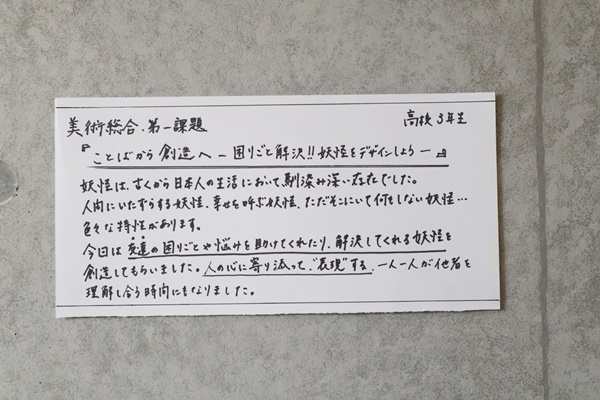 美術総合・第一課題
高校3年生
『ことばから創造へ ー困りごと解決!!妖怪をデザインしようー』
妖怪は、古くから日本人の生活において馴染み深い存在でした。
人間にいたずらする妖怪、幸せを呼ぶ妖怪、ただそこにいて何もしない妖怪…
色々な特性があります。
今回は友達の困りごとや悩みを助けてくれたり、解決してくれる妖怪を
創造してもらいました。人の心に寄り添って、"表現"する、一人一人が他者を
理解し合う時間にもなりました。